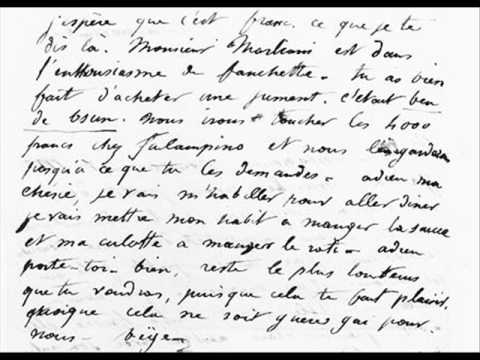 j'espère que c'est franc ce que je te
dis là. Monsieur Marliani est dans
l'enthousiasme de fanchette. tu as bien
fait d'acheter une jument. c'était ben
de bsun. Nous irons toucher les 4000
francs chez et nous les garderons
jusqu'à ce que tu les demandes. adieu ma
chérie, je vais m'habiller pour aller diner
je vais mettre mon habit à manger la sauce
et ma culotte à manger le roti. adieu
porte-toi bien, reste le plus lontems
que tu voudras, puisque cela te fait plaisir,
quoique cela ne soit guères gai pour
nous.